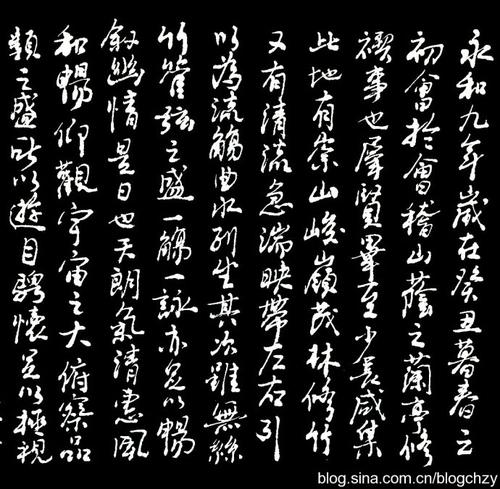 永和九年歲在癸丑暮春之
初會於會稽山蔭之蘭亭修
禊事也羣賢畢至少長咸集
此地有崇山峻嶺茂林修竹
又有清流急湍映帶左右引
以為流觴曲水列坐其次雖無絲
竹管弦之盛一觴一詠亦足以暢
敘幽情是日也天朗氣清惠風
和暢仰觀宇宙之大俯察品
類之盛所以遊目騁懷足以極視
blog.sina.com.cn/blogchzy